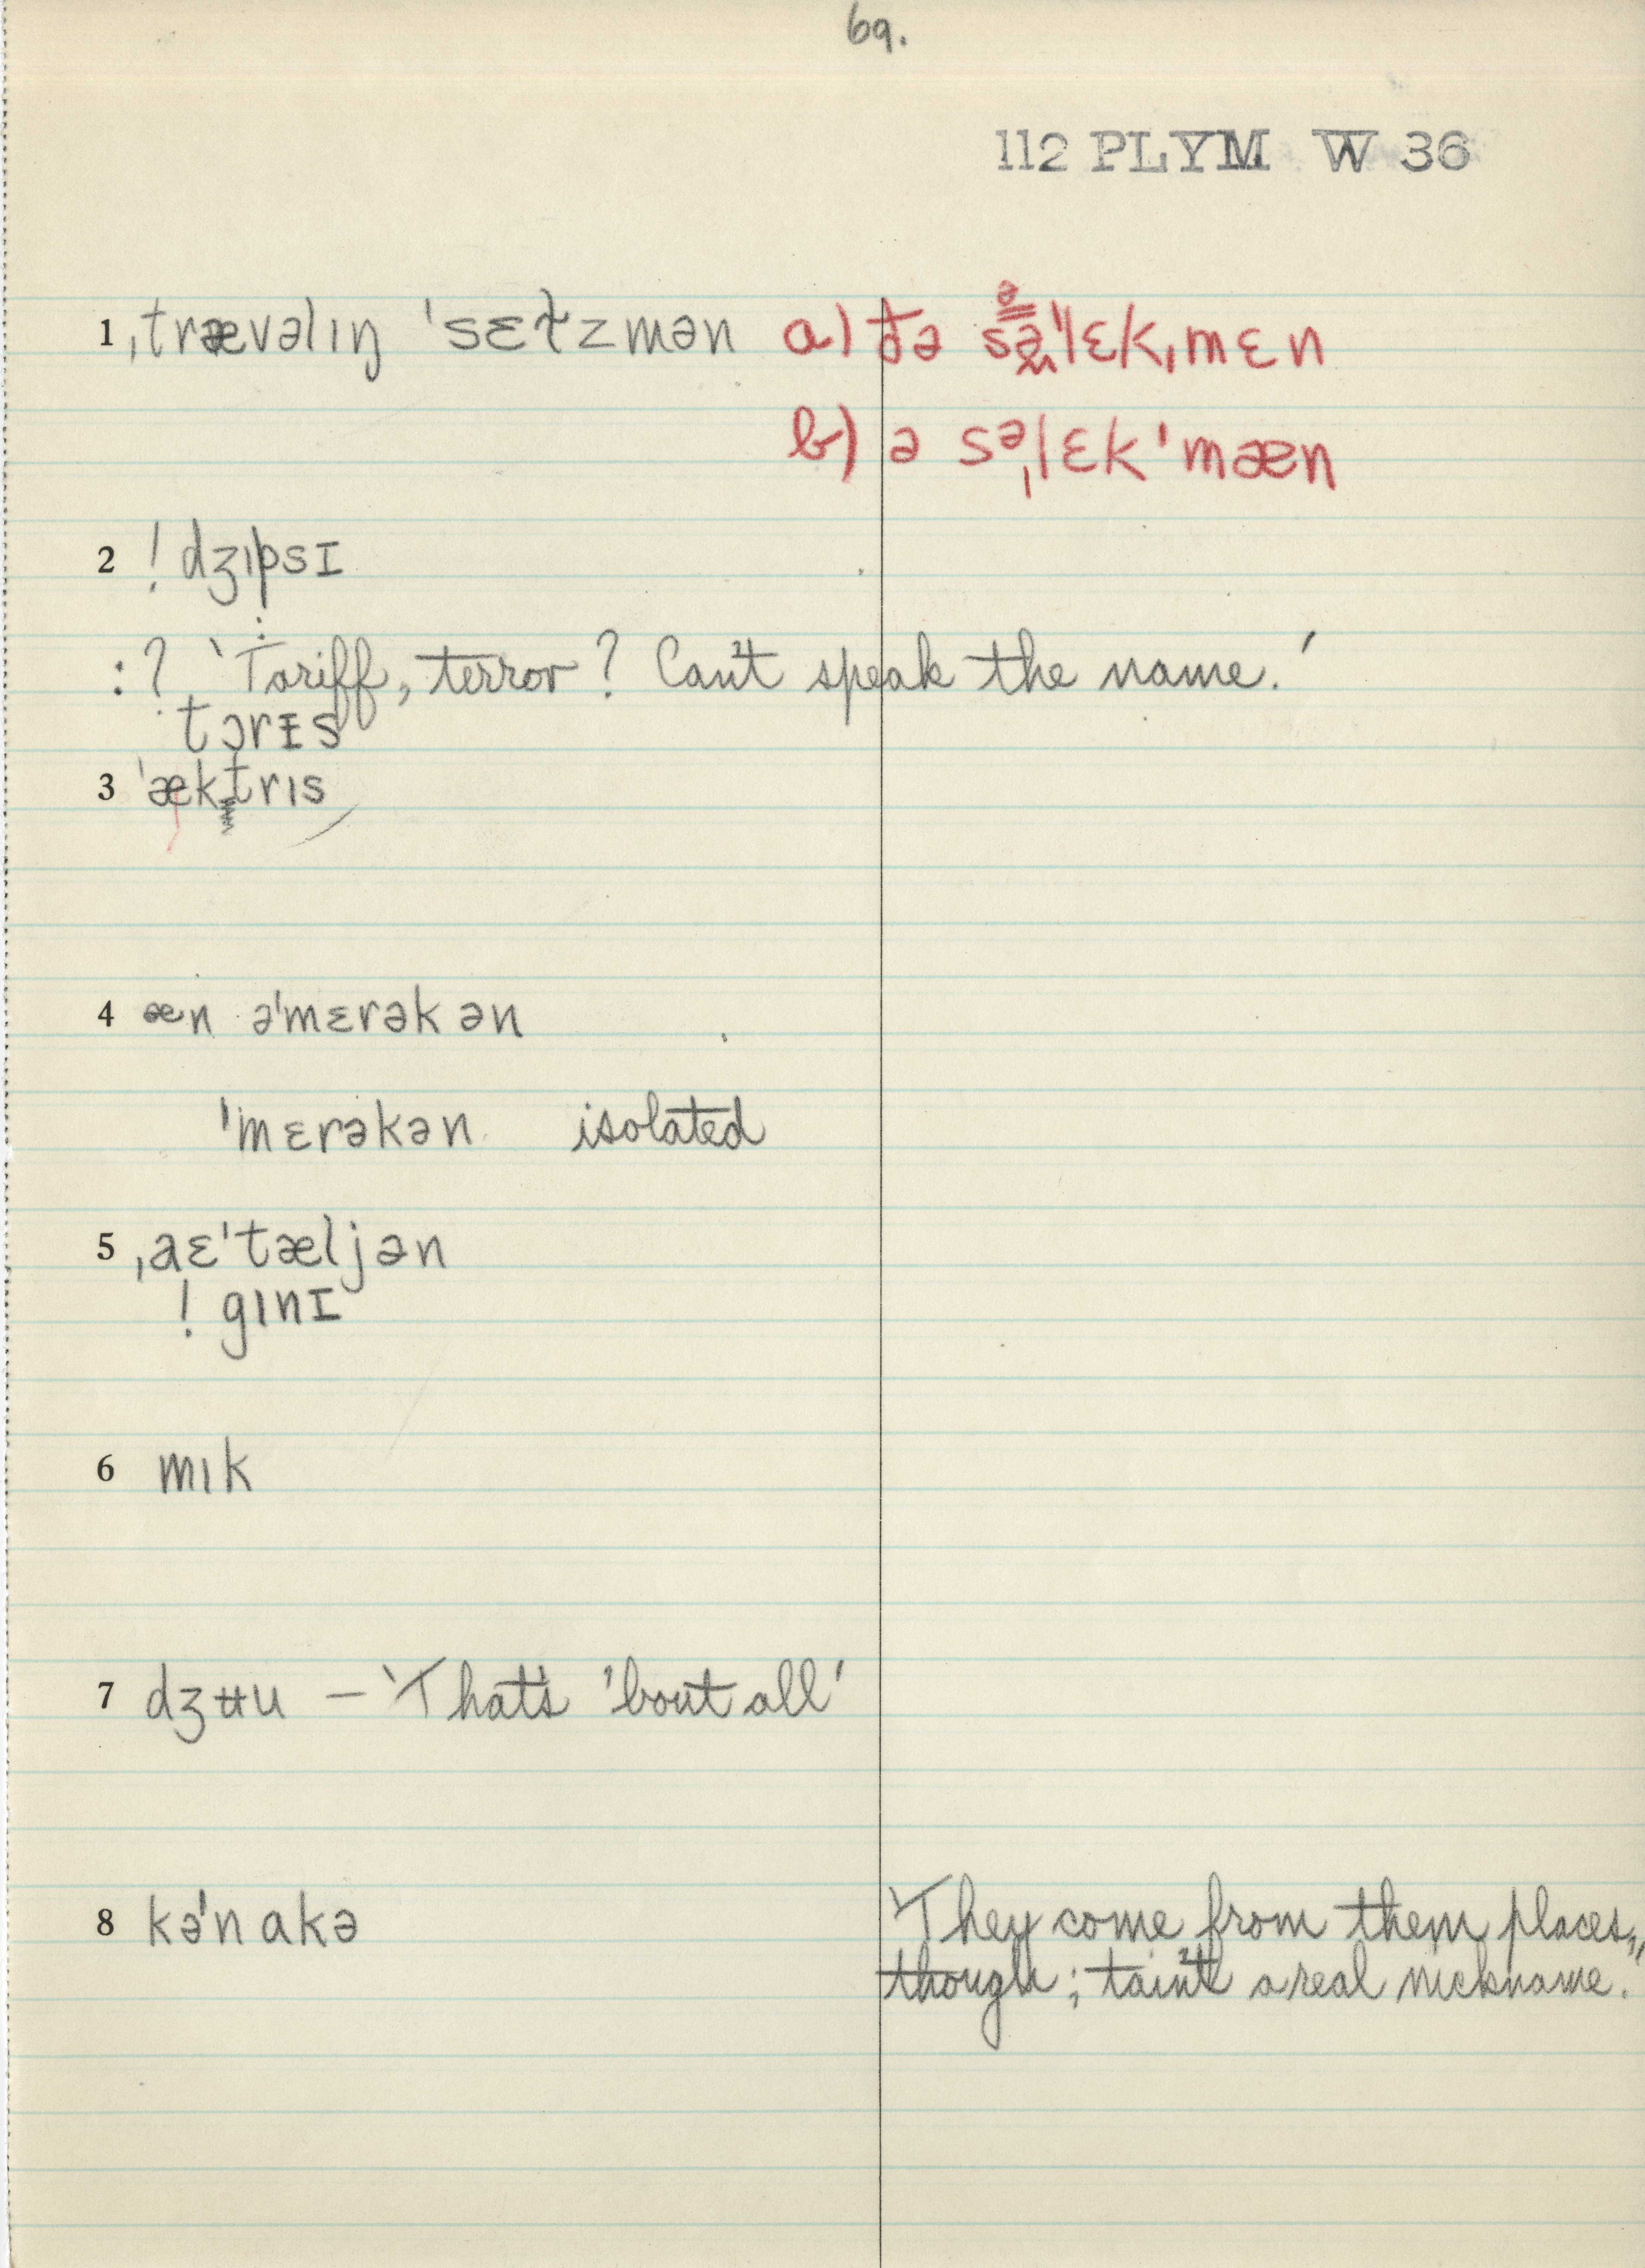 69.
112 PLYM W 36
1 ˌtrævəlıŋ ˈsɛɫzmən a) ðə səˈlɛkˌmɛn
b) ə səˌlɛkˈmæn
2 ! dʒıpsɪ
:? 'Tariff, terror? Can't speak the name.'
tɔrɪs
3 ˈæktrıs
4 æn əˈmɛrəkən
ˈmɛrəkən isolated
5 ˌaɛˈtæljən
! gınɪ
6 mık
7 dʒʉu – 'That's 'bout all'
8 kəˈnakə 'They come from them places,
though; 'tain't a real nickname.'